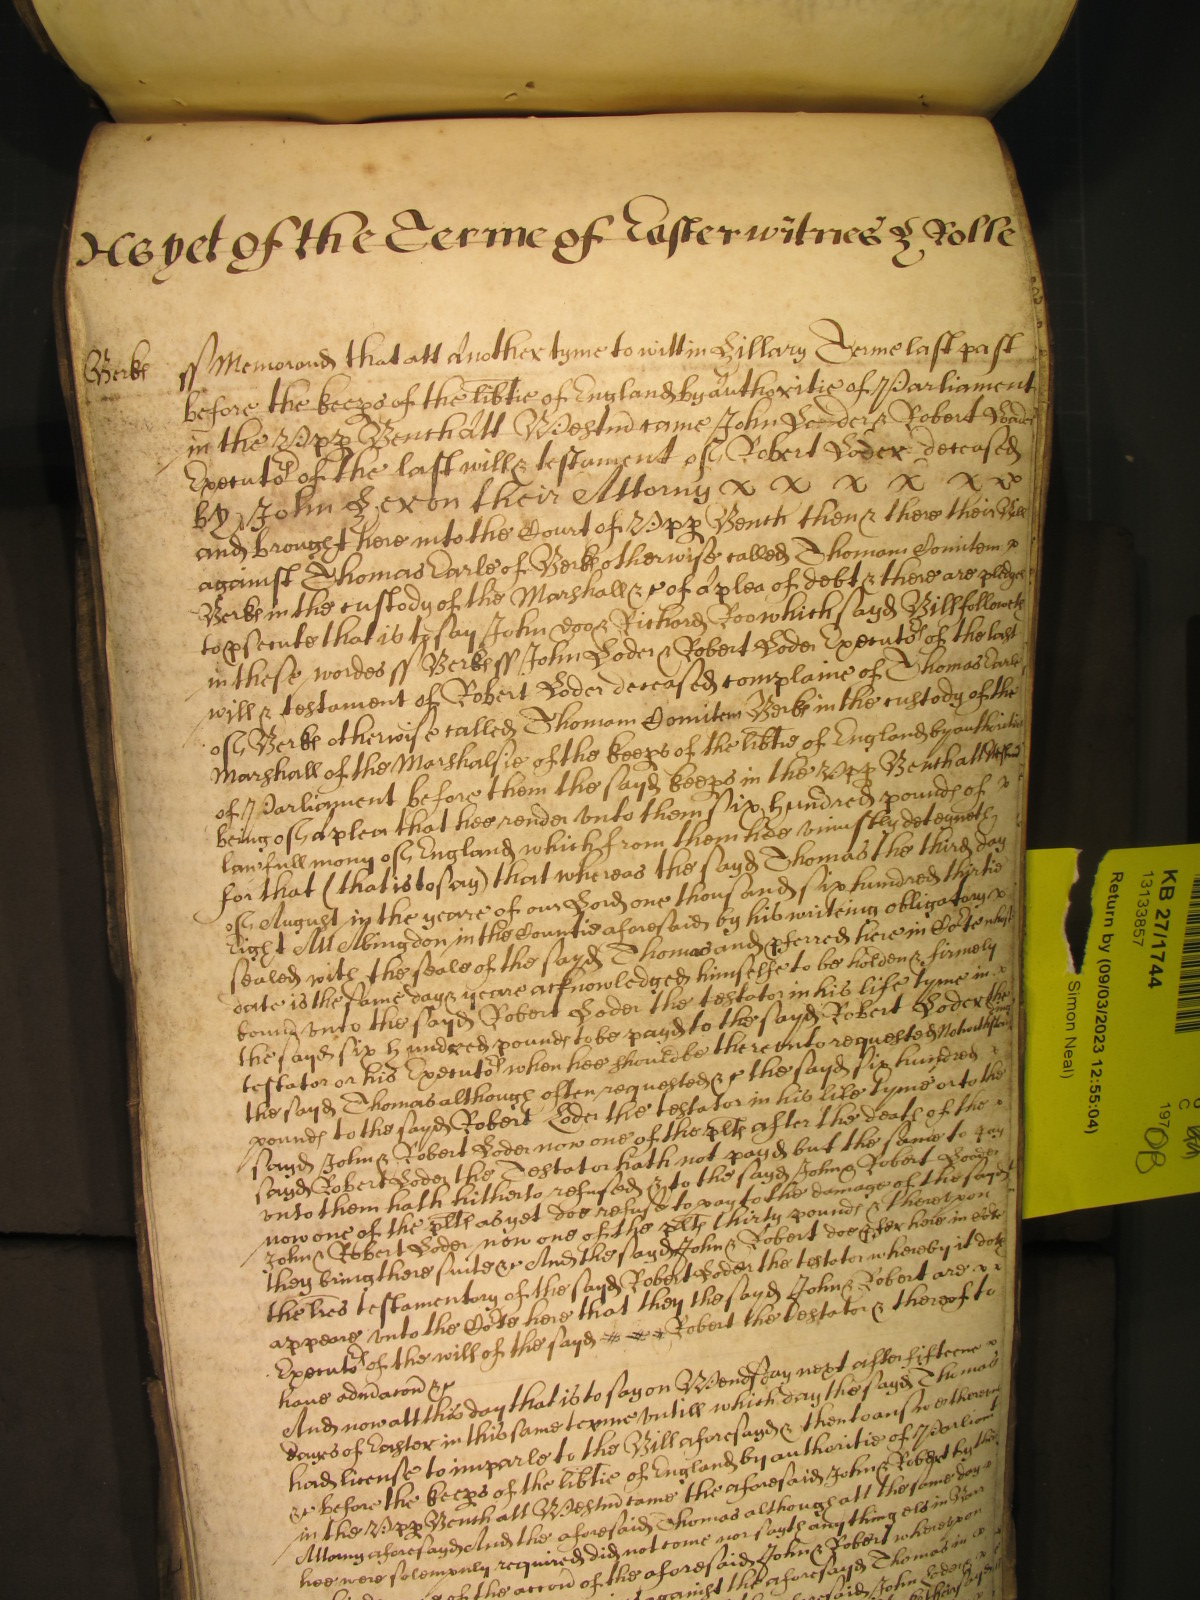 As yet of the Terme of Easter witnes & Rolle
Berks ss Memorand that att Another tyme to witt in Hillary Terme last past
before the keeps of the libtie of England by authoritie of Parliament
in the Upp Bench Att Westm came John Loder & Robert Loder
Executrs of the last will & testament of Robert Loder deceased
by John Hexon their Attorny x x x x x x
and brought here into the Court of Upp Bench then & there their Bill
against Thomas Earle of Berks otherwise called Thomam Comitem x
Berks in the custody of the Marshall &c of a plea of debt & there are pledges
to psecute that is to say John Doo & Richard Roo which sayd Bill followeth
in these wordes ss Berks ss John Loder & Robert Loder Executrs of the last
will & testament of Robert Loder deceased complaine of Thomas Earle
of Berks otherwise called Thomam Comitem Berks in the custody of the
Marshall of the Marshalsie of the keeps of the libtie of England by authoritie
of Parliament before them the sayd keeps in the Upp Bench att Westm
being of a plea that hee render unto them six hundred pounds of x
lawfull mony of England which from them hee uniustly deteyneth
for that (that is to say) that whereas the sayd Thomas the third day
of August in the yeare of our Lord one thousand six hundred thirtie
eight Att Abingdon in the Countie aforesaid by his writeing obligatory x
sealed with the seale of the sayd Thomas and pferred here in Corte whose
date is the same day & yeare acknowledged himselfe to be holden & firmely
bound unto the sayd Robert Loder the testator in his life tyme in x
the sayd six hundred pounds to be payd to the sayd Robert Loder the
testator or his Executrs when hee should be thereunto requested Notwithstanding
the sayd Thomas although often requested &c the sayd six hundred x
pounds to the sayd Robert Loder the testator in his life tyme or to the
sayd John & Robert Loder now one of the plts after the death of the x
sayd Robert Loder the Testator hath not payd but the same to pay
unto them hath hitherto refused & to the sayd John & Robert Loder
now one of the plts as yet doe refuse to pay to the damage of the sayd
John & Robert Loder now one of the plts thirty pounds & thereupon
they bring there suite &c And the sayd John & Robert doe pfer here in Corte
the lres testamentory of the sayd Robert Loder the testator whereby it doth
appeare unto the Corte here that they the sayd John & Robert are x x
Executrs of the will of the sayd Robert the testator & thereof to
have admiacon &c
And now att this day that is to say on Wensday next after fifteene x
dayes of Easter in this same terme untill which day the sayd Thomas
had license to imparle to the Bill aforesayd & then to answere thereunto
&c before the keeps of the libtie of England by authoritie of Parliamt
in the Upp Bench att Westm came the aforesaid John & Robert by their
Attorny aforesayd And the aforesaid Thomas although att the same day x
hee were solempnly required did not come nor sayth any thing els in Barr
of the accon of the aforesaid John & Robert whereupon
against the aforesayd Thomas in x
John Loder
KB 27/1744
13133857
Return by (09/03/2023 12:55:04)
Simon Neal)